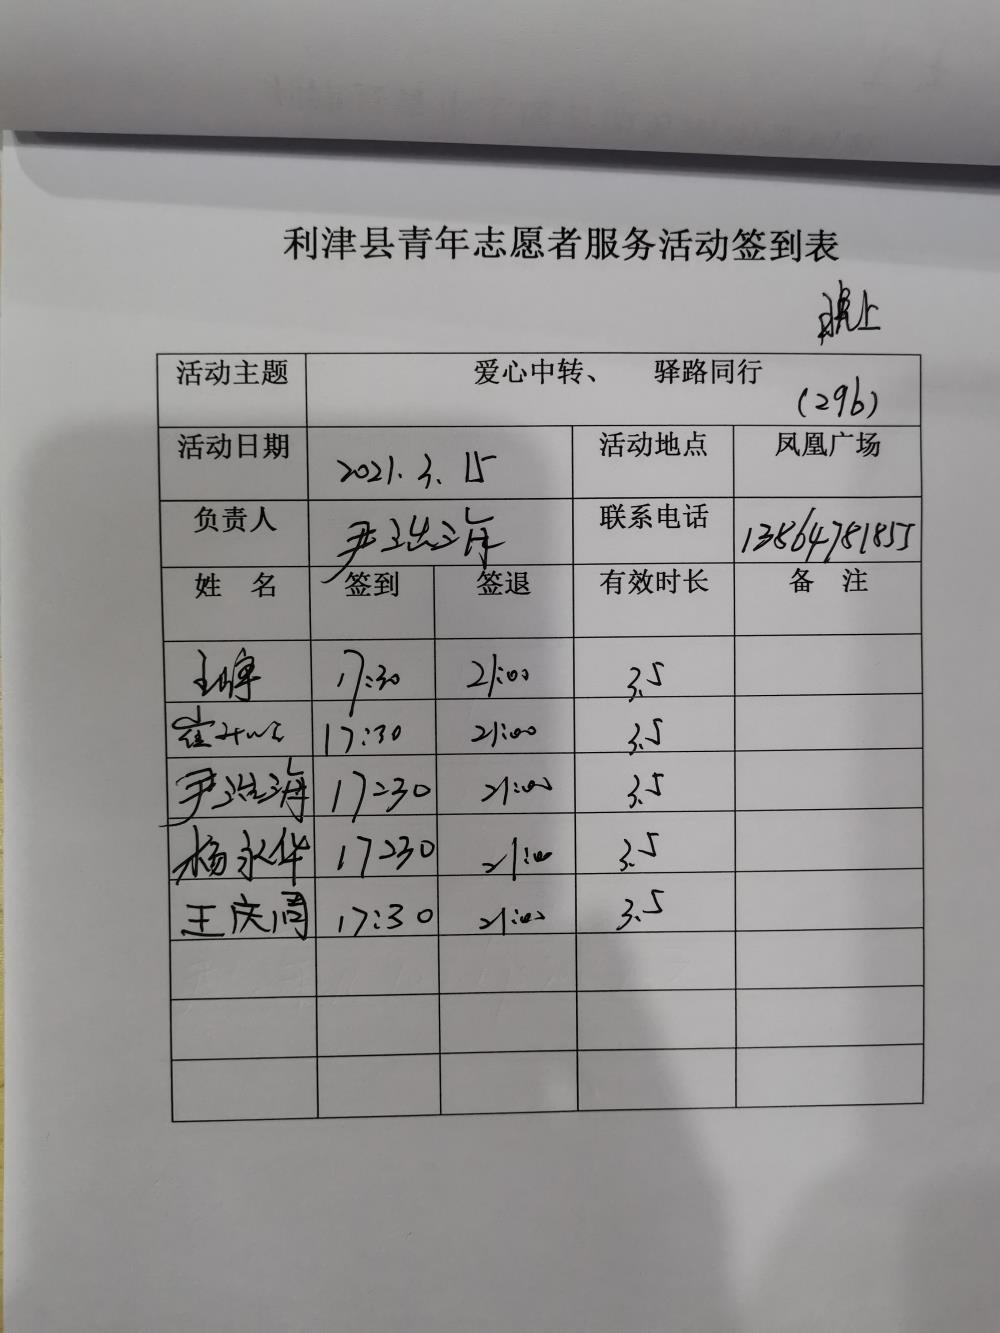 利津县青年志愿者服务活动签到表
晚上
活动主题 爱心中转、 驿路同行
(296)
活动日期 2021.3.15 活动地点 凤凰广场
负责人 尹浩海 联系电话 13864781855
姓 名 签到 签退 有效时长 备 注
17:30 21:00 3.5
崔 17:30 21:00 3.5
尹浩海 17:30 21:00 3.5
杨永华 17:30 21:00 3.5
王庆周 17:30 21:00 3.5